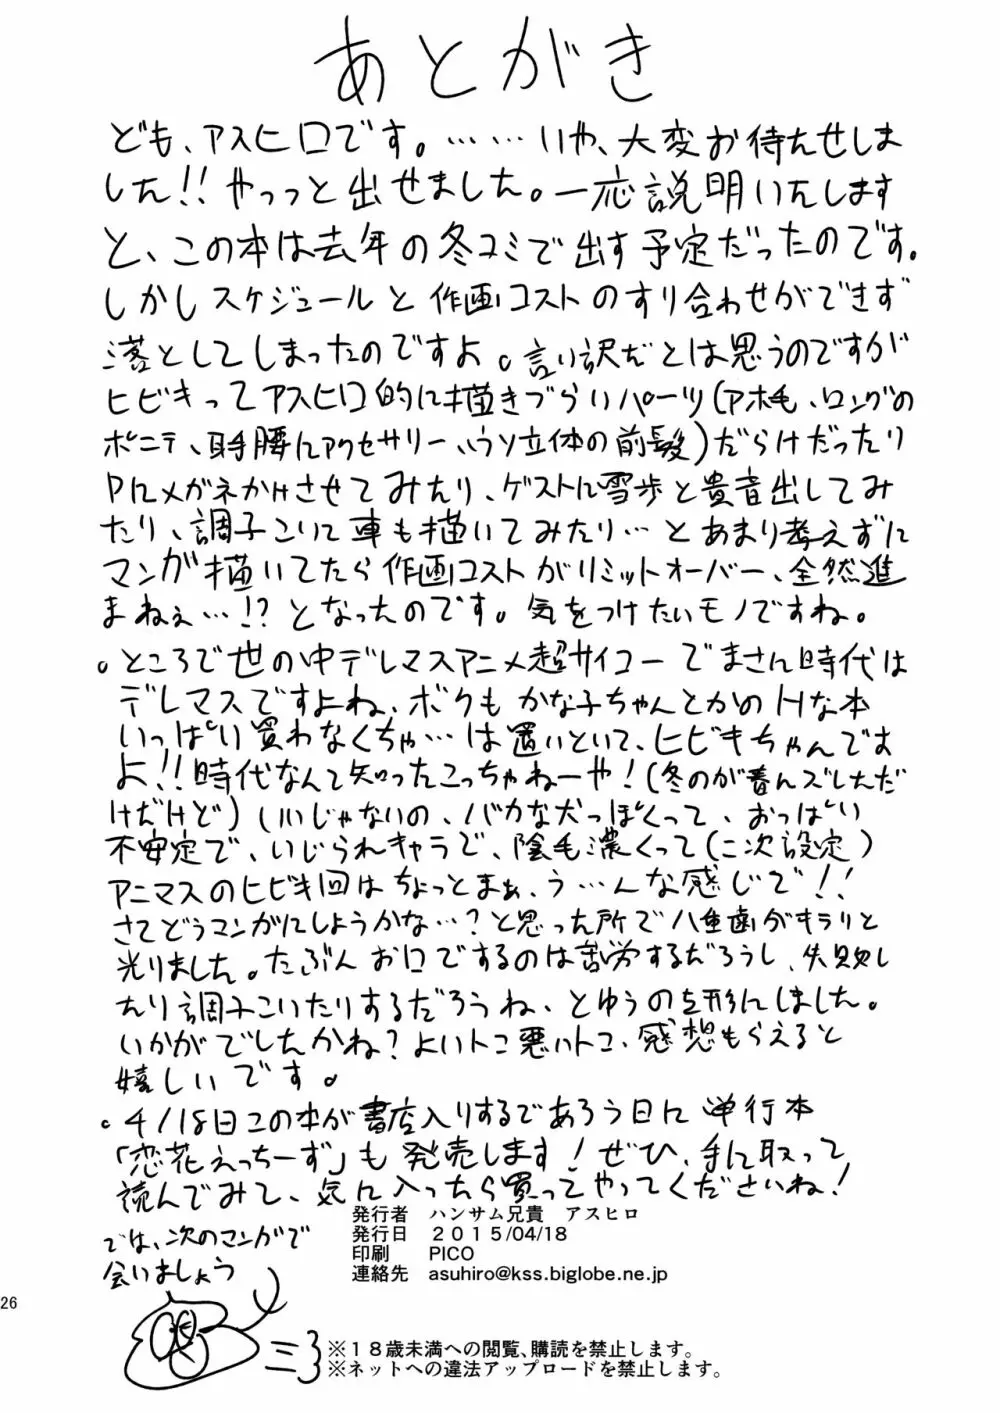 あとがき
ども、アスヒロです。……いや、大変お待たせしま
した!!やっっと出せました。一応説明いたします
と、この本は去年の冬コミで出す予定だったのです。
しかしスケジュールと作画コストのすり合わせができず
落としてしまったのですよ。言い訳だとは思うのですが
ヒビキってアスヒロ的に描きづらいパーツ(アホ毛、ロングの
ポニテ、手腰にアクセサリー、ウソ立体の前髪)だらけだったり
Pにメガネかけさせてみたり、ゲストに雪歩と貴音出してみ
たり、調子こいて車も描いてみたり…とあまり考えずに
マンガ描いてたら作画コストがリミットオーバー、全然進
まねぇ…!?となったのです。気をつけたいモノですね。
。ところで世の中デレマスアニメ超サイコーでまさに時代は
デレマスですよね、ボクもかな子ちゃんとかのHな本
いっぱい買わなくちゃ…は置いといて、ヒビキちゃんです
よ!!時代なんて知ったこっちゃねーや!(冬のが春んズレしただ
けだけど)(いいじゃないの、バカな犬っぽくって、おっぱい
不安定で、いじられキャラで、陰毛濃くって(二次設定)
アニマスのヒビキ回はちょっとまぁ、う…んな感じで!!
さてどうマンガにしようかな…?と思った所で八重歯がキラリと
光りました。たぶんお口でするのは苦労するだろうし、失敗し
たり調子こいたりするだろうね、とゆうのを形にしました。
いかがでしたかね?よいトコ悪いトコ、感想もらえると
嬉しいです。
。4/18日この本が書店入りするであろう日に単行本
「恋花えっちーず」も発売します!ぜひ、手に取って
読んでみて、気に入ったら買ってやってくださいね!
では、次のマンガで
会いましょう
発行者　ハンサム兄貴　アスヒロ
発行日　２０１５/04/18
印刷　PICO
連絡先　asuhiro@kss.biglobe.ne.jp
26
※１８歳未満への閲覧、購読を禁止します。
※ネットへの違法アップロードを禁止します。